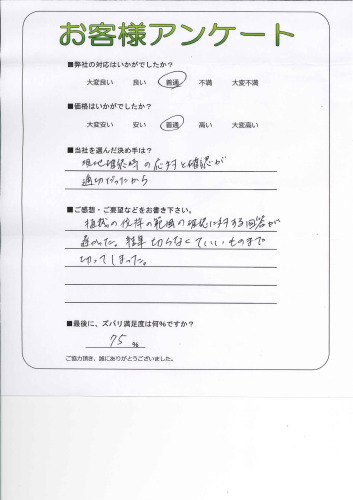 お客様アンケート
■弊社の対応はいかがでしたか?
大変良い 良い 普通 不満 大変不満
■価格はいかがでしたか?
大変安い 安い 普通 高い 大変高い
■当社を選んだ決め手は?
現地確認時の応対と確認が
適切だったから
■ご感想・ご要望などをお書き下さい。
植栽の伐採の範囲の確認に対する回答が
遅かった。結果切らなくていいものまで
切ってしまった。
■最後に、ズバリ満足度は何%ですか?
75%
ご協力頂き、誠にありがとうございました。